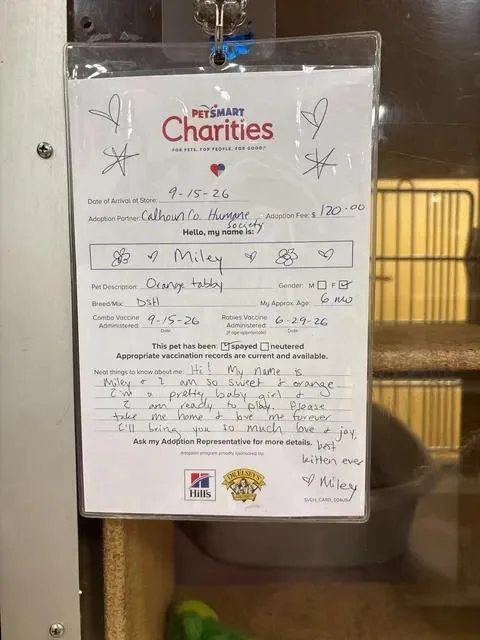 PETSMART
Charities
FOR PETS. FOR PEOPLE. FOR GOOD.
Date of Arrival at Store: 9-15-26
Adoption Partner: Calhoun Co. Humane Society Adoption Fee: $ 120.00
Hello, my name is:
Miley
Pet Description: Orange tabby Gender: M F
Breed/Mix: DSH My Approx. Age: 6 mo
Combo Vaccine Administered: 9-15-26 Rabies Vaccine Administered: 6-29-26
Date (if age appropriate) Date
This pet has been: spayed neutered
Appropriate vaccination records are current and available.
Neat things to know about me: Hi! My name is
Miley & I am so sweet & orange
I'm a pretty baby girl &
I am ready to play. Please
take me home & love me forever
I'll bring you so much love & joy,
Ask my Adoption Representative for more details. best
kitten ever
Adoption program proudly sponsored by:
♡ Miley
Hill's
DR. ELSEY'S